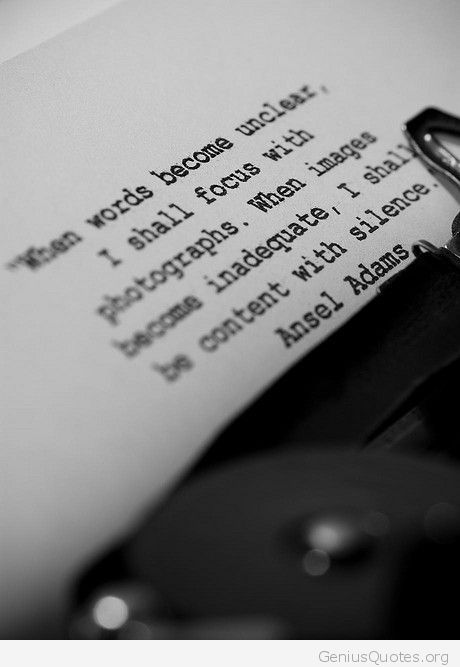 "When words become unclear,
I shall focus with
photographs. When images
become inadequate, I shall
be content with silence.
Ansel Adams
GeniusQuotes.org